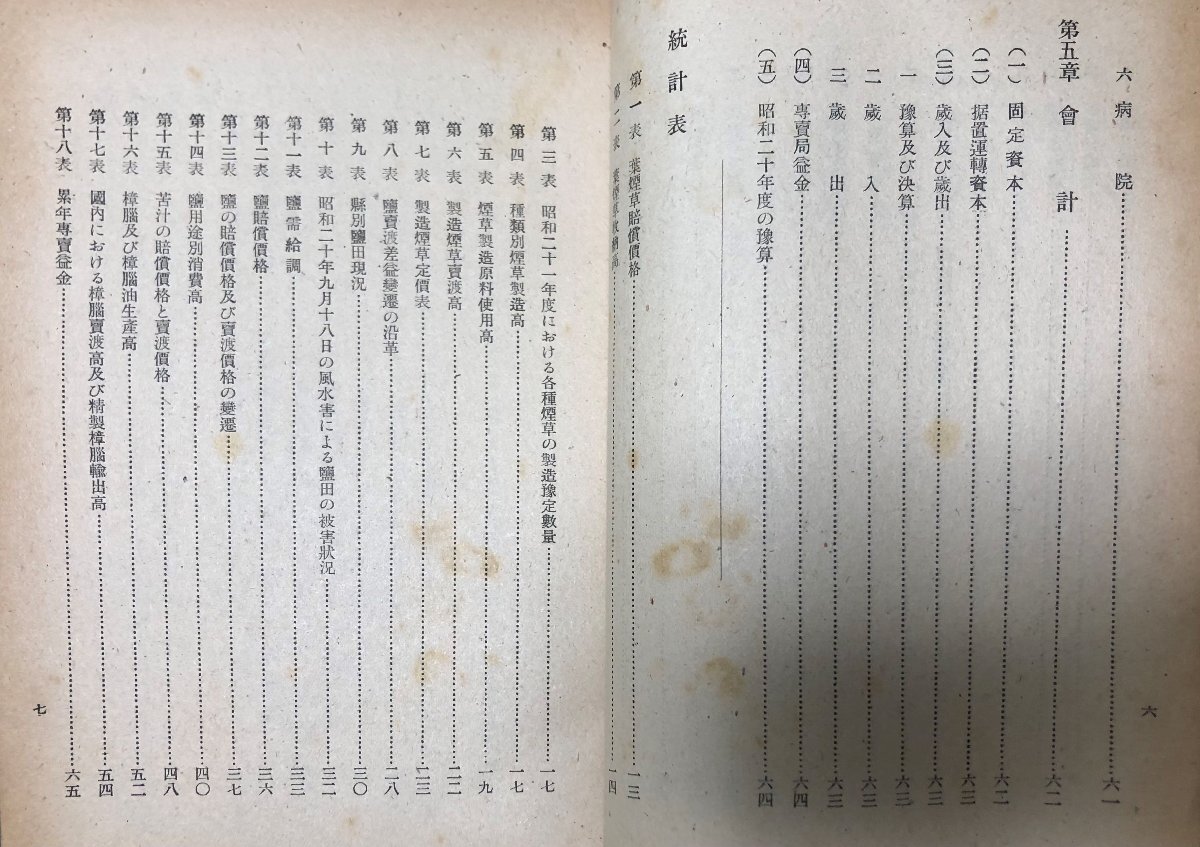 六 病院……六一
第五章 會計……六二
(一) 固定資本……六二
(二) 据置運轉資本……六三
(三) 歲入及び歲出……六三
一 豫算及び決算……六三
二 歲入……六三
三 歲出……六三
(四) 專賣局益金……六四
(五) 昭和二十年度の豫算……六四
統計表
第一表 葉煙草賠償價格……一三
第二表 葉煙草收納高……一四
六
第三表 昭和二十一年度における各種煙草の製造豫定數量……一七
第四表 種類別煙草製造高……一七
第五表 煙草製造原料使用高……一九
第六表 製造煙草賣渡高……二二
第七表 製造煙草定價表……二三
第八表 鹽賣渡差益變遷の沿革……二八
第九表 縣別鹽田現況……三〇
第十表 昭和二十年九月十八日の風水害による鹽田の被害狀況……三二
第十一表 鹽需給調……三三
第十二表 鹽賠償價格……三六
第十三表 鹽の賠償價格及び賣渡價格の變遷……三七
第十四表 鹽用途別消費高……四〇
第十五表 苦汁の賠償價格と賣渡價格……四八
第十六表 樟腦及び樟腦油生產高……五二
第十七表 國內における樟腦賣渡高及び精製樟腦輸出高……五四
第十八表 累年專賣益金……六五
七